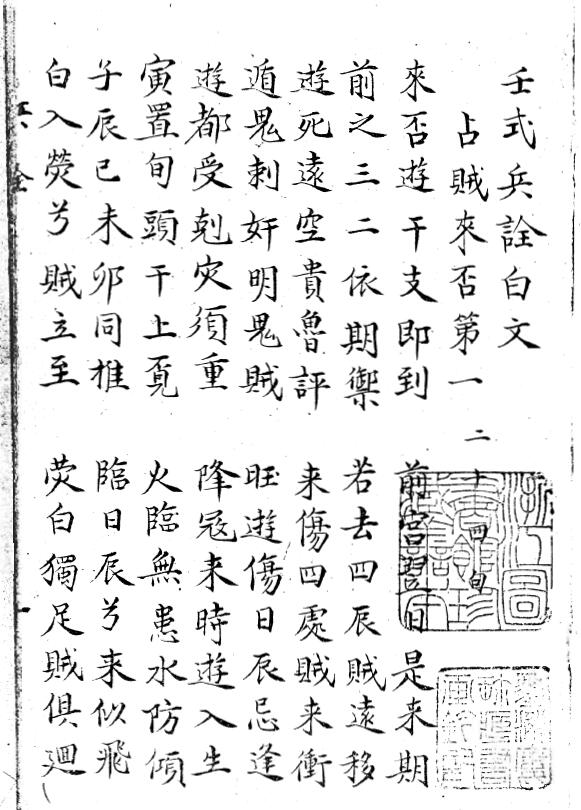 壬式兵詮白文
占賊來否第一 二十四句
來否遊干支即到 前宮翌日是来期
前之三二依期禦 若去四辰賊遠移
遊死遠空貴魯評 来傷四處賊来衝
遁鬼刺奸明鬼賊 旺遊傷日辰忌逢
遊都受剋灾須重 降冦来時遊入生
寅置旬頭干上覓 火臨無患水防傾
子辰巳未卯同推 臨日辰兮来似飛
白入熒兮賊立至 荧白獨足賊俱迴